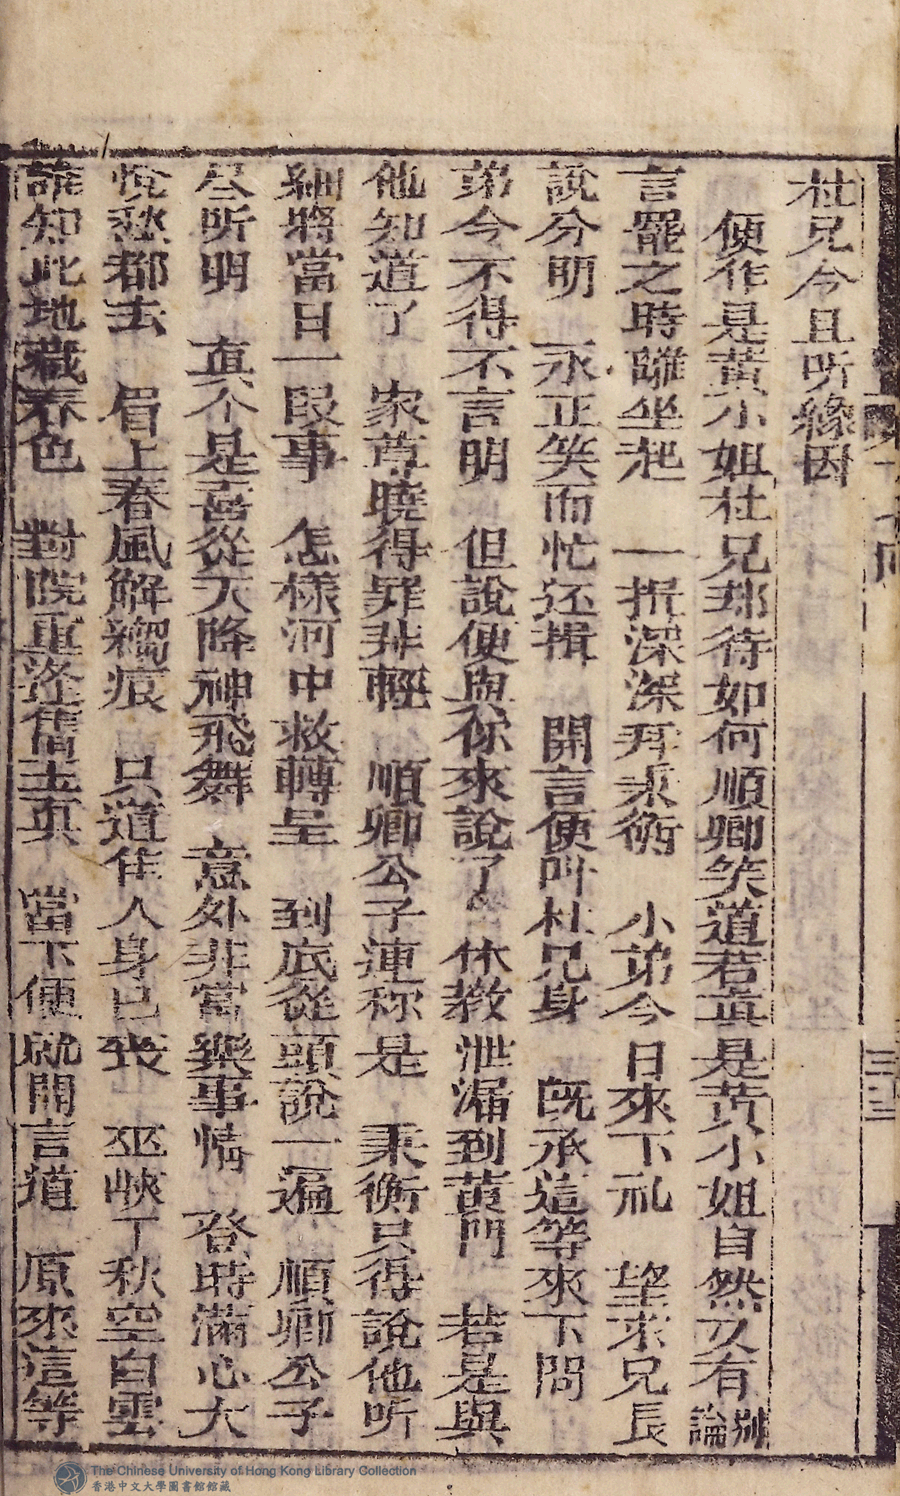 杜兄今且听緣因
便作是黃小姐杜兄那待如何順卿笑道若真是黃小姐自然又有別論
言罷之時離坐起 一揖深深拜秉衡 小弟今日來下礼 望求兄長
說分明 永正笑而忙还揖 開言便叫杜兄身 既承這等來下問
弟今不得不言明 但說便與你來說了 休教泄漏到黃門 若是與
他知道了 家尊曉得罪非輕 順卿公子連称是 秉衡只得說他听
細將當日一段事 怎樣河中救轉呈 到底從頭說一遍 順卿公子
尽听明 真个是喜從天降神飛舞 意外非當樂事情 登時滿心大
悅愁都去 眉上春風解縐痕 只道佳人身已喪 巫峽丁秋空白雲
誰知此地藏春色 對院重逢舊主真 當下便就開言道 原來這等
The Chinese University of Hong Kong Library Collection
香港中文大學圖書館館藏